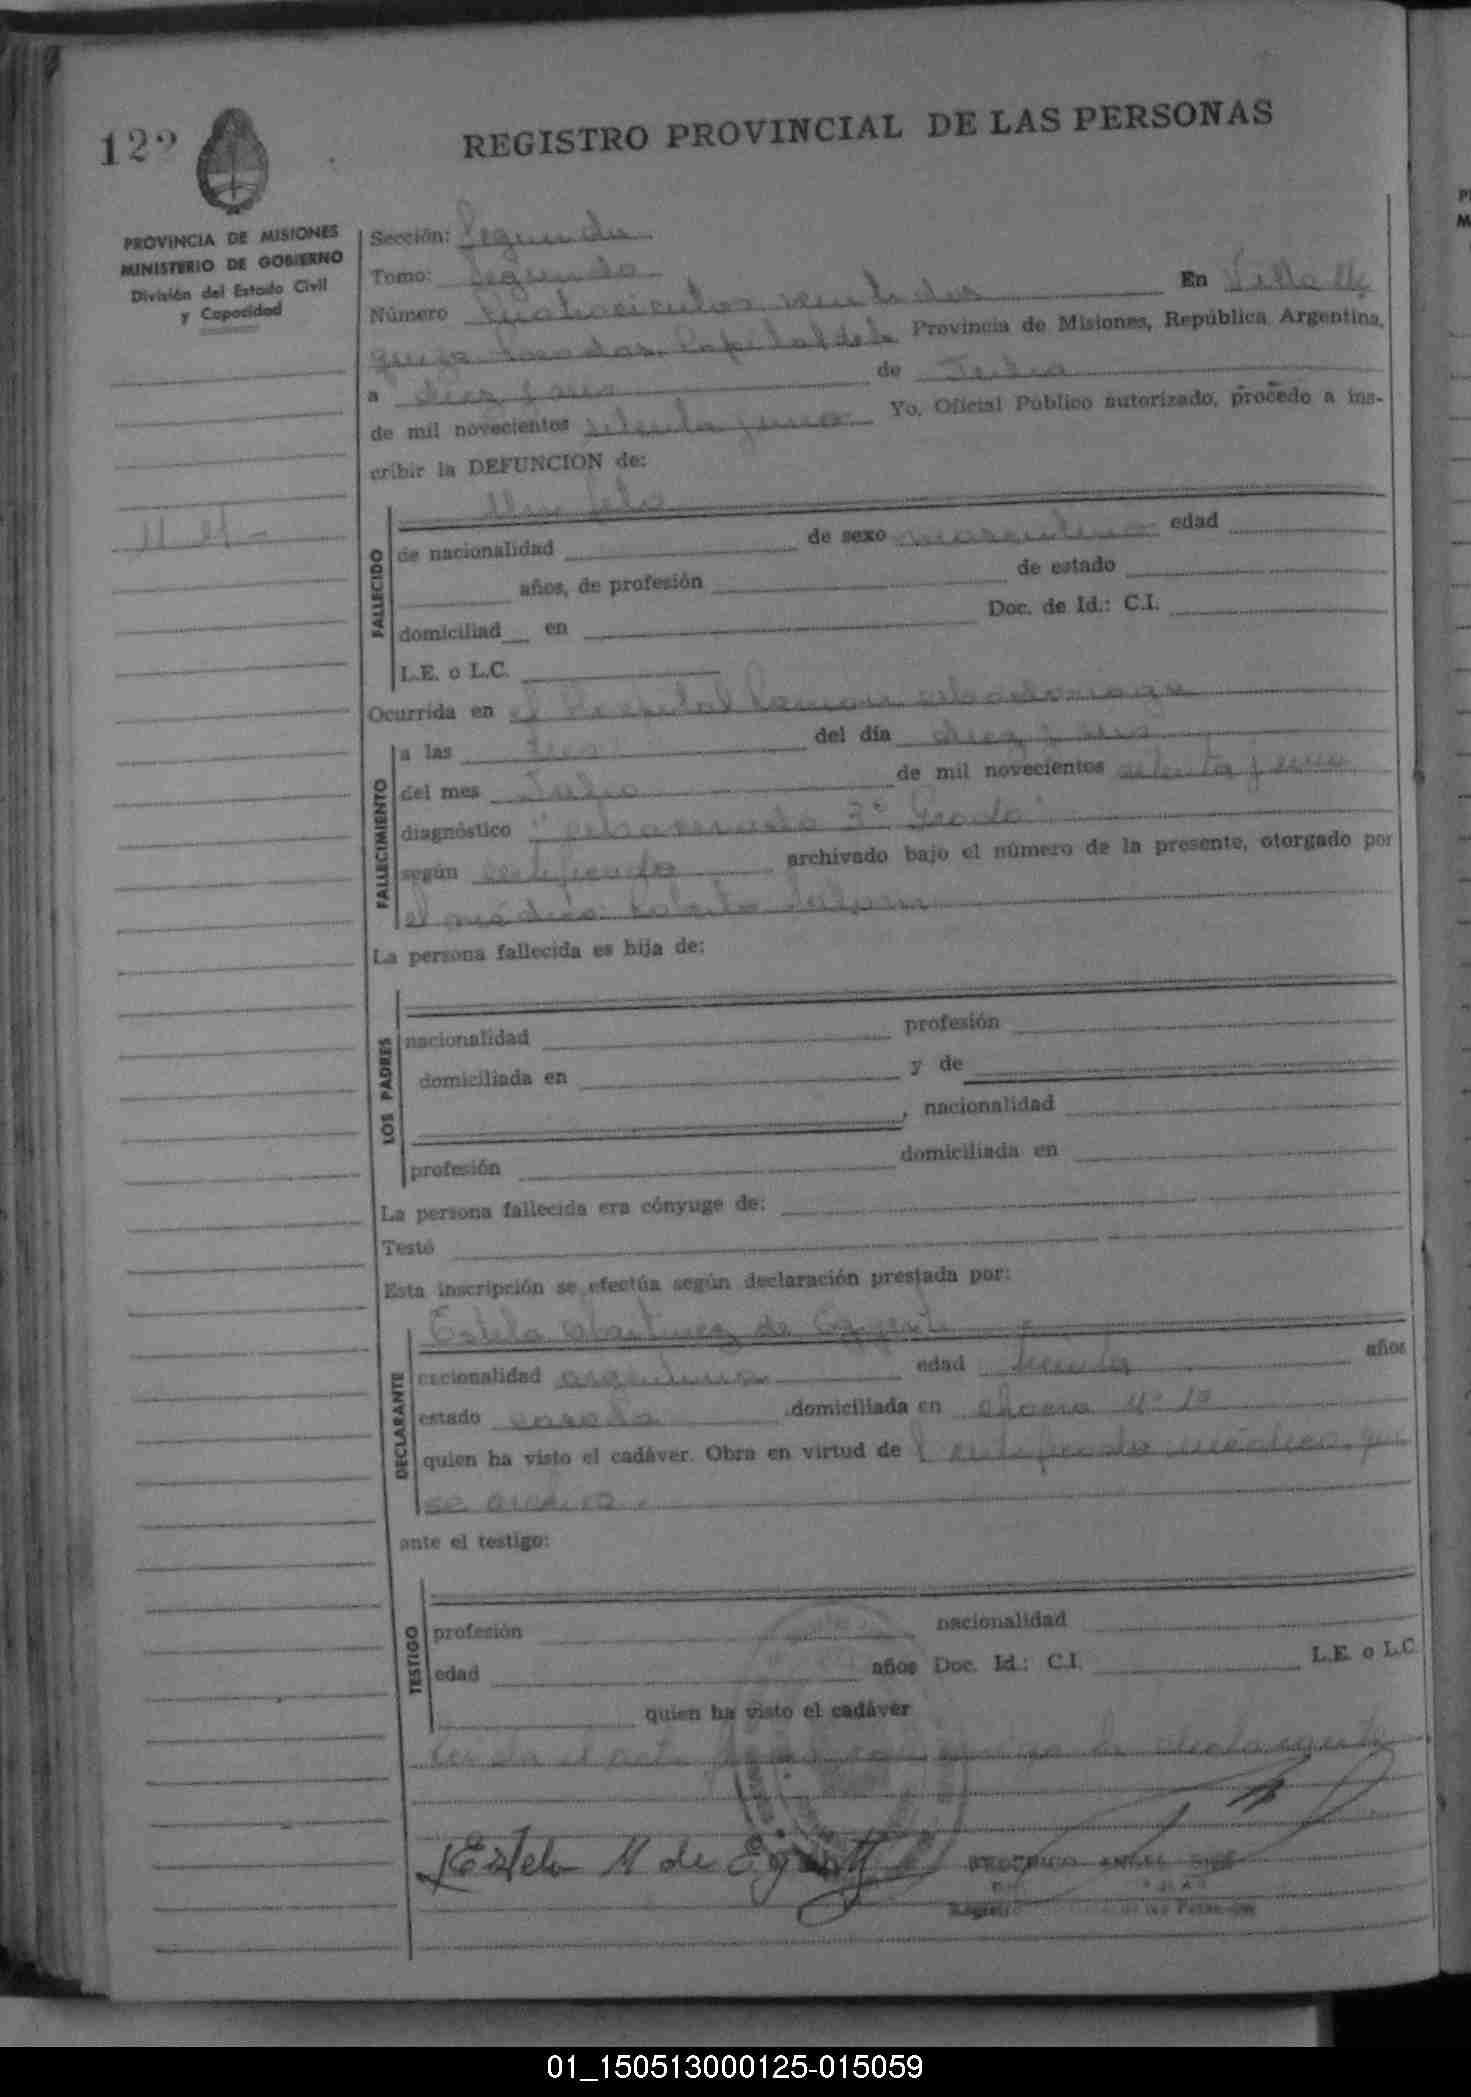 122
REGISTRO PROVINCIAL DE LAS PERSONAS
PROVINCIA DE MISIONES
MINISTERIO DE GOBIERNO
División del Estado Civil
y Capacidad
Sección: Segunda
Tomo: Segundo
Número Cuatrocientos veintidos En Villa
Posadas, Capital de la Provincia de Misiones, República Argentina,
a diez y seis de Julio
de mil novecientos setenta y uno Yo, Oficial Público autorizado, procedo a ins-
cribir la DEFUNCION de:
N N -
FALLECIDO
Un feto
de nacionalidad de sexo masculino edad
años, de profesión de estado
domiciliad en Doc. de Id.: C.I.
L.E. o L.C.
Ocurrida en el Hospital Ramon Madariaga
FALLECIMIENTO
a las del día diez y seis
del mes Julio de mil novecientos setenta y uno
diagnóstico 3º Grado
según certificado archivado bajo el número de la presente, otorgado por
el médico: Roberto
La persona fallecida es hija de:
LOS PADRES
nacionalidad profesión
domiciliada en y de
, nacionalidad
profesión domiciliada en
La persona fallecida era cónyuge de:
Testó
Esta inscripción se efectúa según declaración prestada por:
DECLARANTE
Estela Martinez de
nacionalidad argentina edad treinta años
estado casada domiciliada en chacra Nº
quien ha visto el cadáver. Obra en virtud de certificado médico que
se archiva.
ante el testigo:
TESTIGO
profesión nacionalidad
edad años Doc. Id.: C.I. L.E. o L.C.
quien ha visto el cadáver
Leida el acta la declarante
Estela M de
ANGEL
Registro de las Personas
01_150513000125-015059